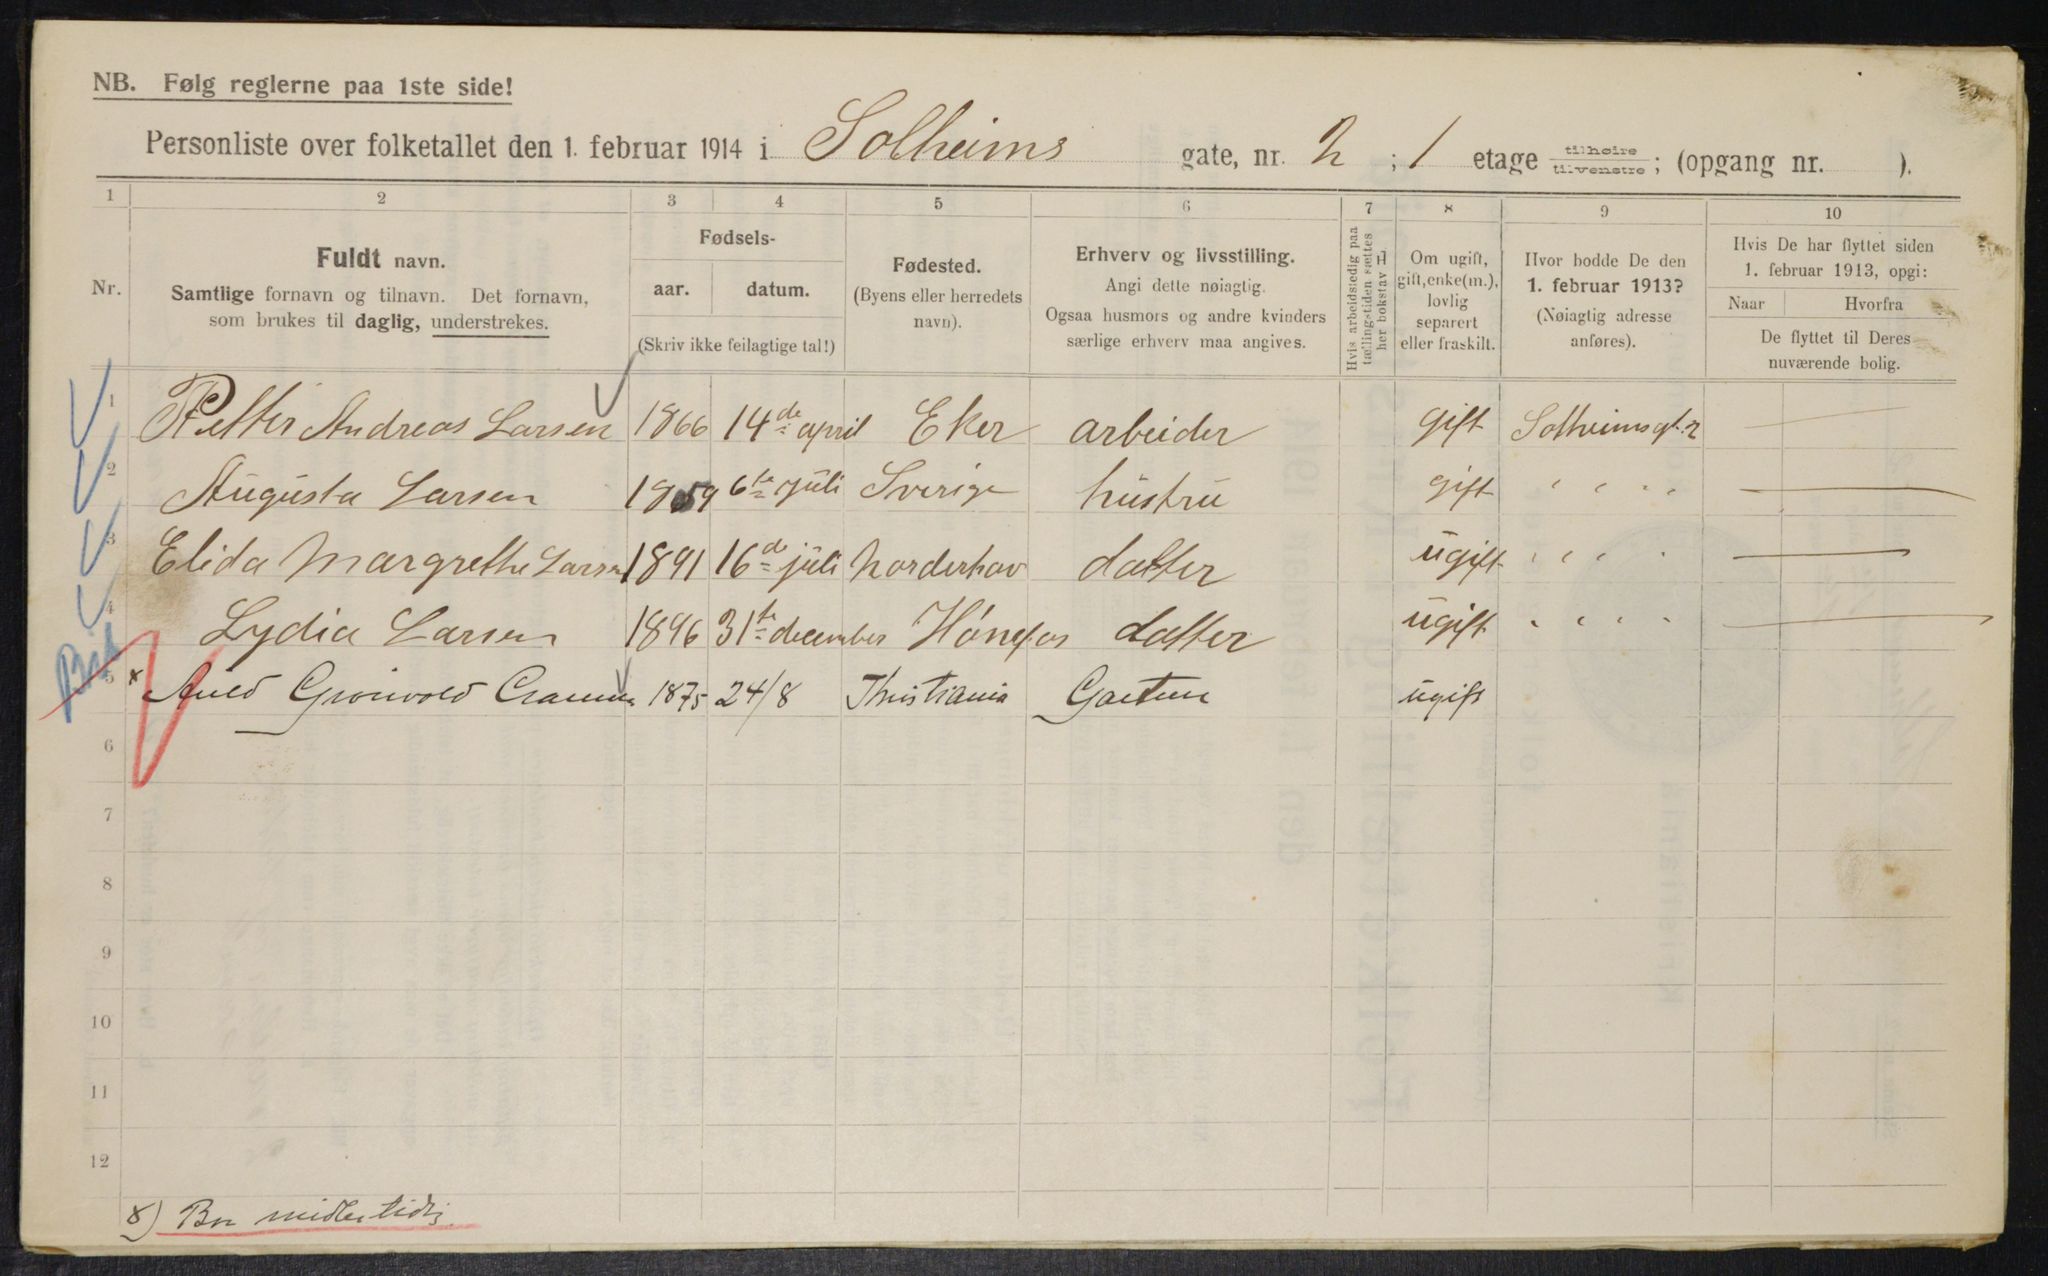 NB. Følg reglerne paa 1ste side!
Personliste over folketallet den 1. februar 1914 i Solheims gate, nr. 2 ; 1 etage tilhøire tilvenstre ; (opgang nr. ).
1 2 3 4 5 6 7 8 9 10
Nr.
Fuldt navn.
Samtlige fornavn og tilnavn. Det fornavn,
som brukes til daglig, understrekes.
Fødsels-
aar. datum.
(Skriv ikke feilagtige tal!)
Fødested.
(Byens eller herredets
navn).
Erhverv og livsstilling.
Angi dette nøiagtig.
Ogsaa husmors og andre kvinders
særlige erhverv maa angives.
Hvis arbeidsledig paa
tællingstiden sættes
her bokstav L
Om ugift,
gift, enke(m.),
lovlig
separert
eller fraskilt.
Hvor bodde De den
1. februar 1913?
(Nøiagtig adresse
anføres).
Hvis De har flyttet siden
1. februar 1913, opgi:
Naar Hvorfra
De flyttet til Deres
nuværende bolig.
1 Petter Andreas Larsen 1866 14de april Eker arbeider gift Solheimsgt. 2 —
2 Augusta Larsen 1859 6te juli Sverige hustru gift " " " " —
3 Elida Margrethe Larsen 1891 16de juli Norderhov datter ugift " " " " —
4 Lydia Larsen 1896 31te december Hønefos datter ugift " " " " —
5 x 1875 24/8 Kristiania ugift
6
7
8
9
10
11
12
x) Bor midlertidig